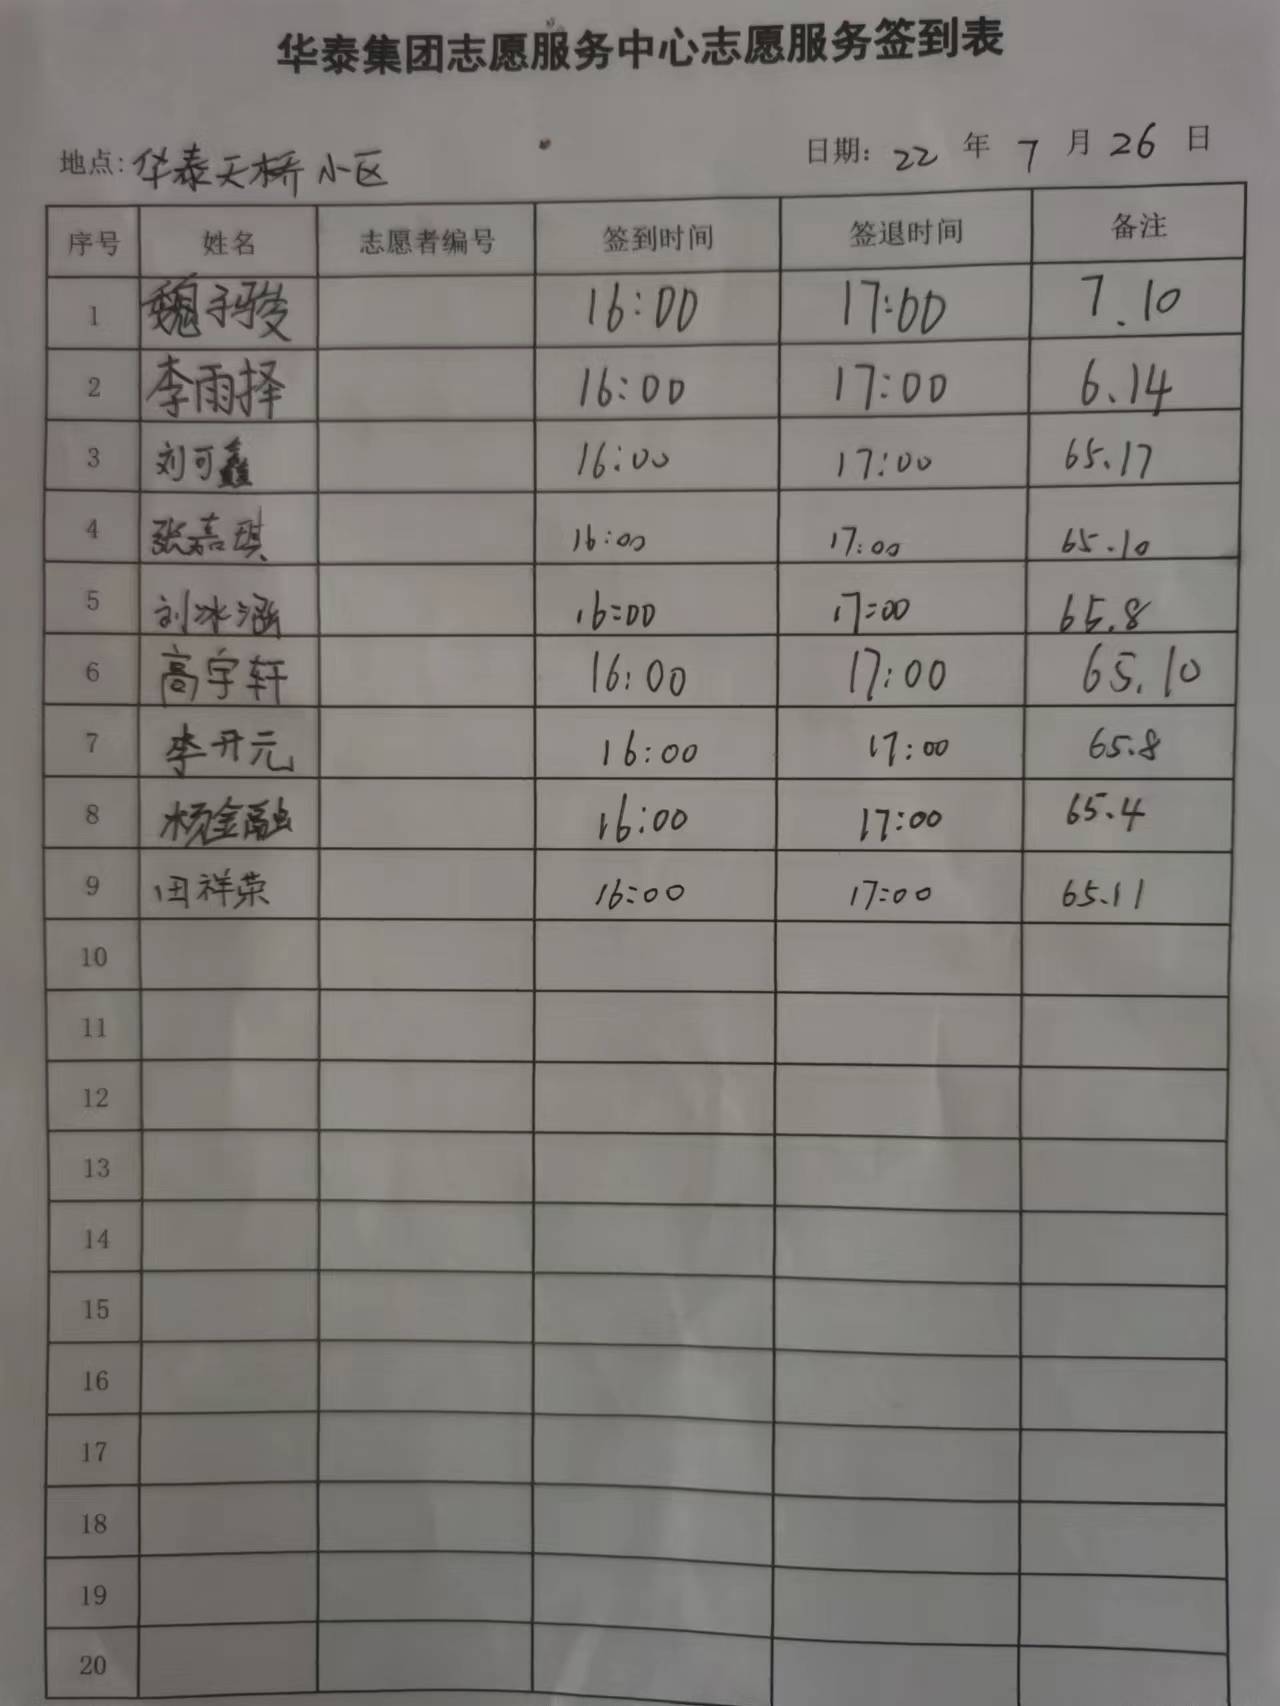 华泰集团志愿服务中心志愿服务签到表
地点: 华泰天桥小区 日期: 22 年 7 月 26 日
序号 姓名 志愿者编号 签到时间 签退时间 备注
1 魏子骏 16:00 17:00 7.10
2 李雨择 16:00 17:00 6.14
3 刘可鑫 16:00 17:00 65.17
4 张嘉琪 16:00 17:00 65.10
5 刘冰涵 16:00 17:00 65.8
6 高宇轩 16:00 17:00 65.10
7 李开元 16:00 17:00 65.8
8 杨金融 16:00 17:00 65.4
9 田祥荣 16:00 17:00 65.11
10
11
12
13
14
15
16
17
18
19
20